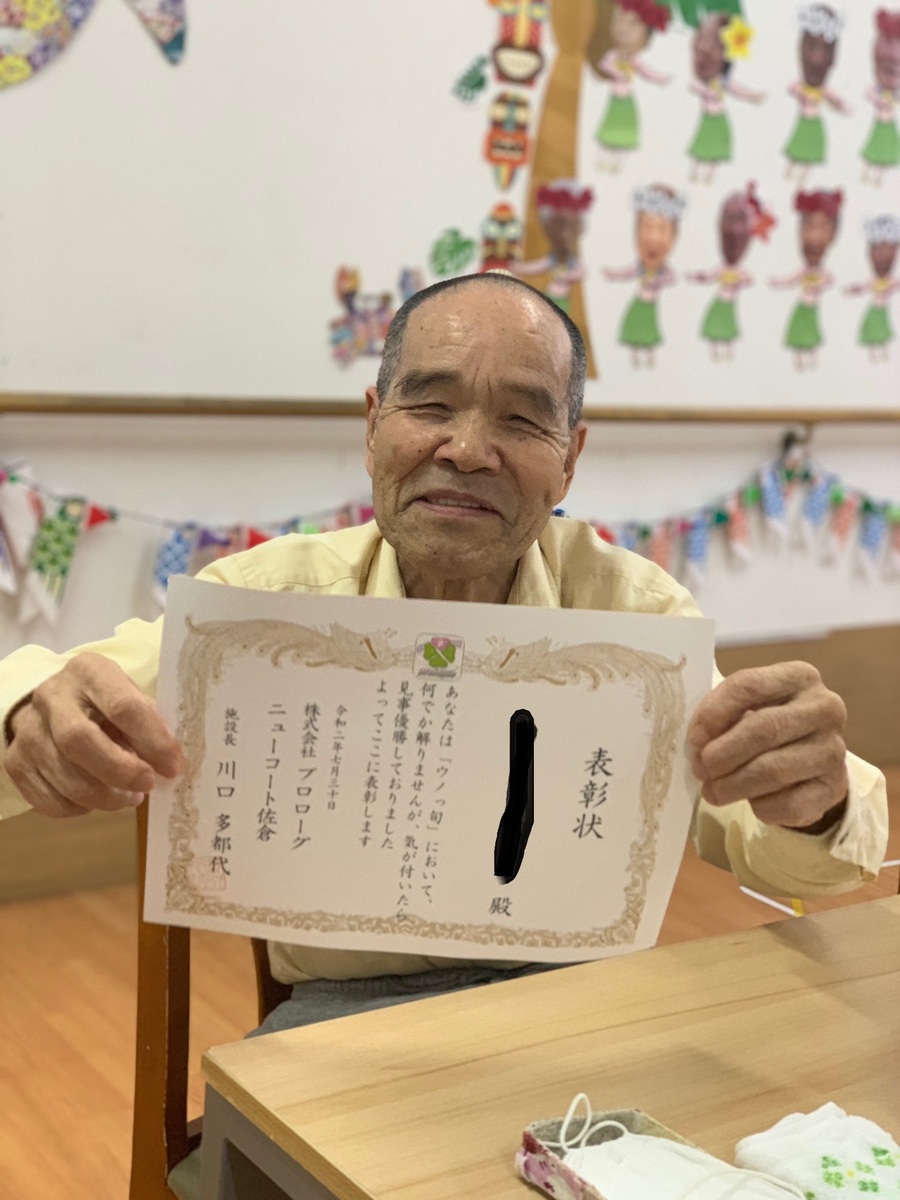 表彰状
殿
あなたは「ウノっ旬」において、
何でか解りませんが、気が付いたら
見事優勝しておりました
よってここに表彰します
令和二年七月三十日
株式会社 プロローグ
ニューコート佐倉
施設長 川口 多都代